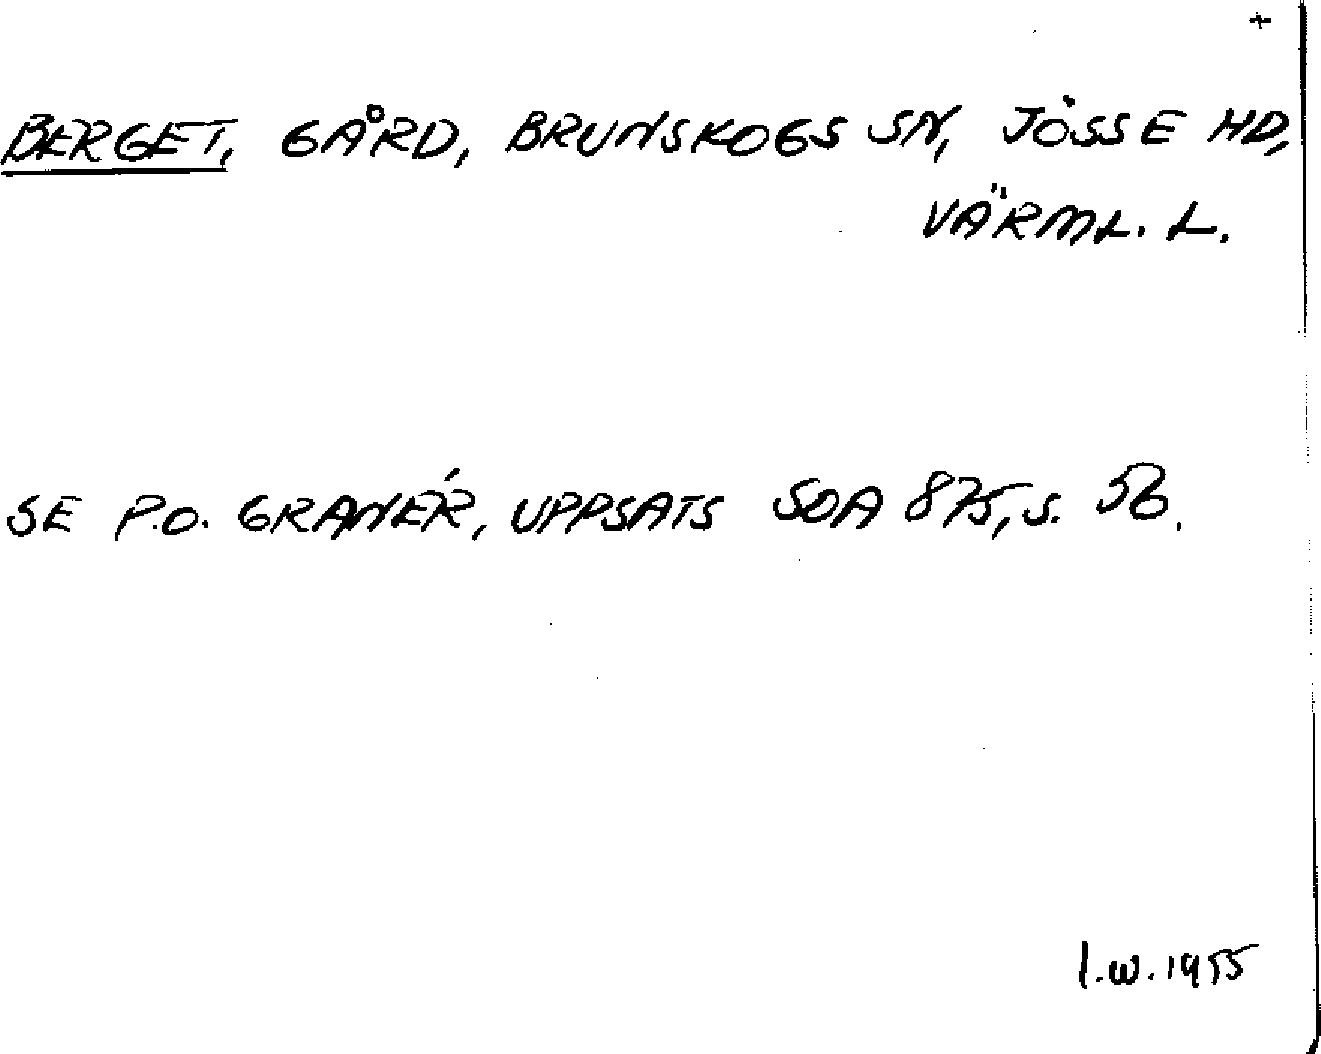 +
BERGET, GÅRD, BRUNSKOGS SN, JÖSSE HD,
VÄRML. L.
SE P.O. GRANÉR, UPPSATS SOA 875, S. 56.
I.W. 1955